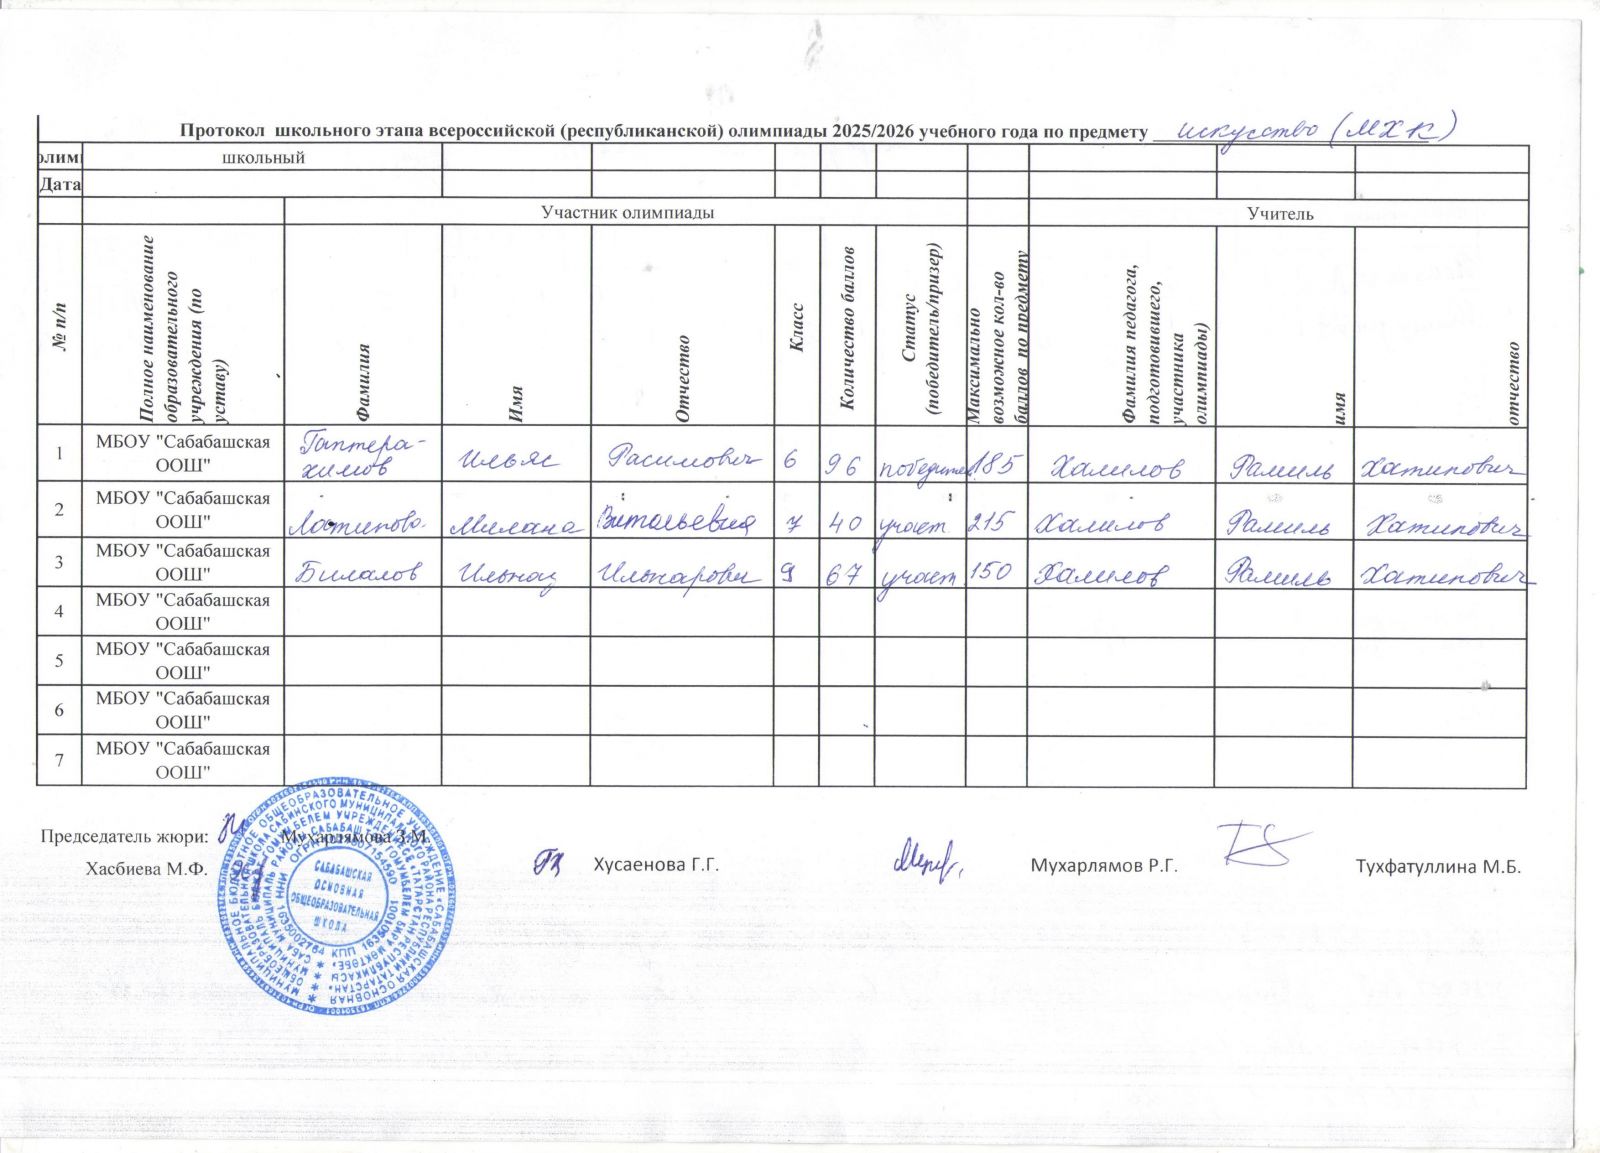 Протокол школьного этапа всероссийской (республиканской) олимпиады 2025/2026 учебного года по предмету искусство (МХК)
олим школьный
Дата
Участник олимпиады Учитель
№ п/п Полное наименование образовательного учреждения (по уставу) Фамилия Имя Отчество Класс Количество баллов Статус (победитель/призер) Максимально возможное кол-во баллов по предмету Фамилия педагога, подготовившего, участника олимпиады) имя отчество
1 МБОУ "Сабабашская ООШ" Гаптерахимов Ильяс Расимович 6 96 победител 185 Халилов Рамиль Хатипович
2 МБОУ "Сабабашская ООШ" Латипова Милана Витальевна 7 40 участ 215 Халилов Рамиль Хатипович
3 МБОУ "Сабабашская ООШ" Билалов Ильназ Ильнарович 9 67 участ. 150 Халилов Рамиль Хатипович
4 МБОУ "Сабабашская ООШ"
5 МБОУ "Сабабашская ООШ"
6 МБОУ "Сабабашская ООШ"
7 МБОУ "Сабабашская ООШ"
Председатель жюри: Мухарлямова З.М.
Хасбиева М.Ф. Хусаенова Г.Г. Мухарлямов Р.Г. Тухфатуллина М.Б.
САБАБАШСКАЯ
ОСНОВНАЯ
ОБЩЕОБРАЗОВАТЕЛЬНАЯ
ШКОЛА